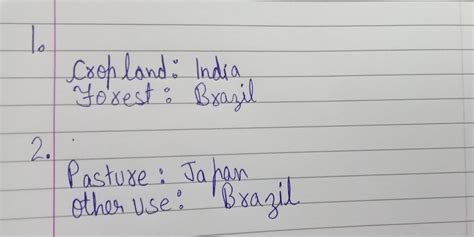 1.
Cropland: India
Forest: Brazil
2.
Pasture: Japan
other use: Brazil